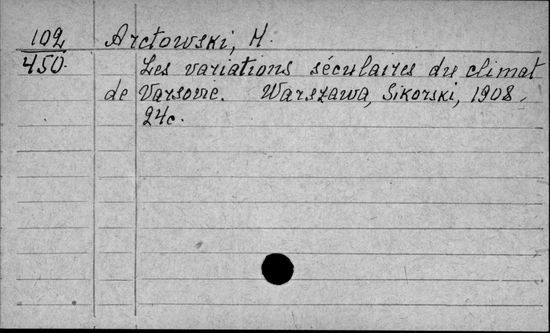 102 Arctowski, H.
450. Les variations séculaires du climat
de Varsovie. Warszawa, Sikorski, 1908.
24c.